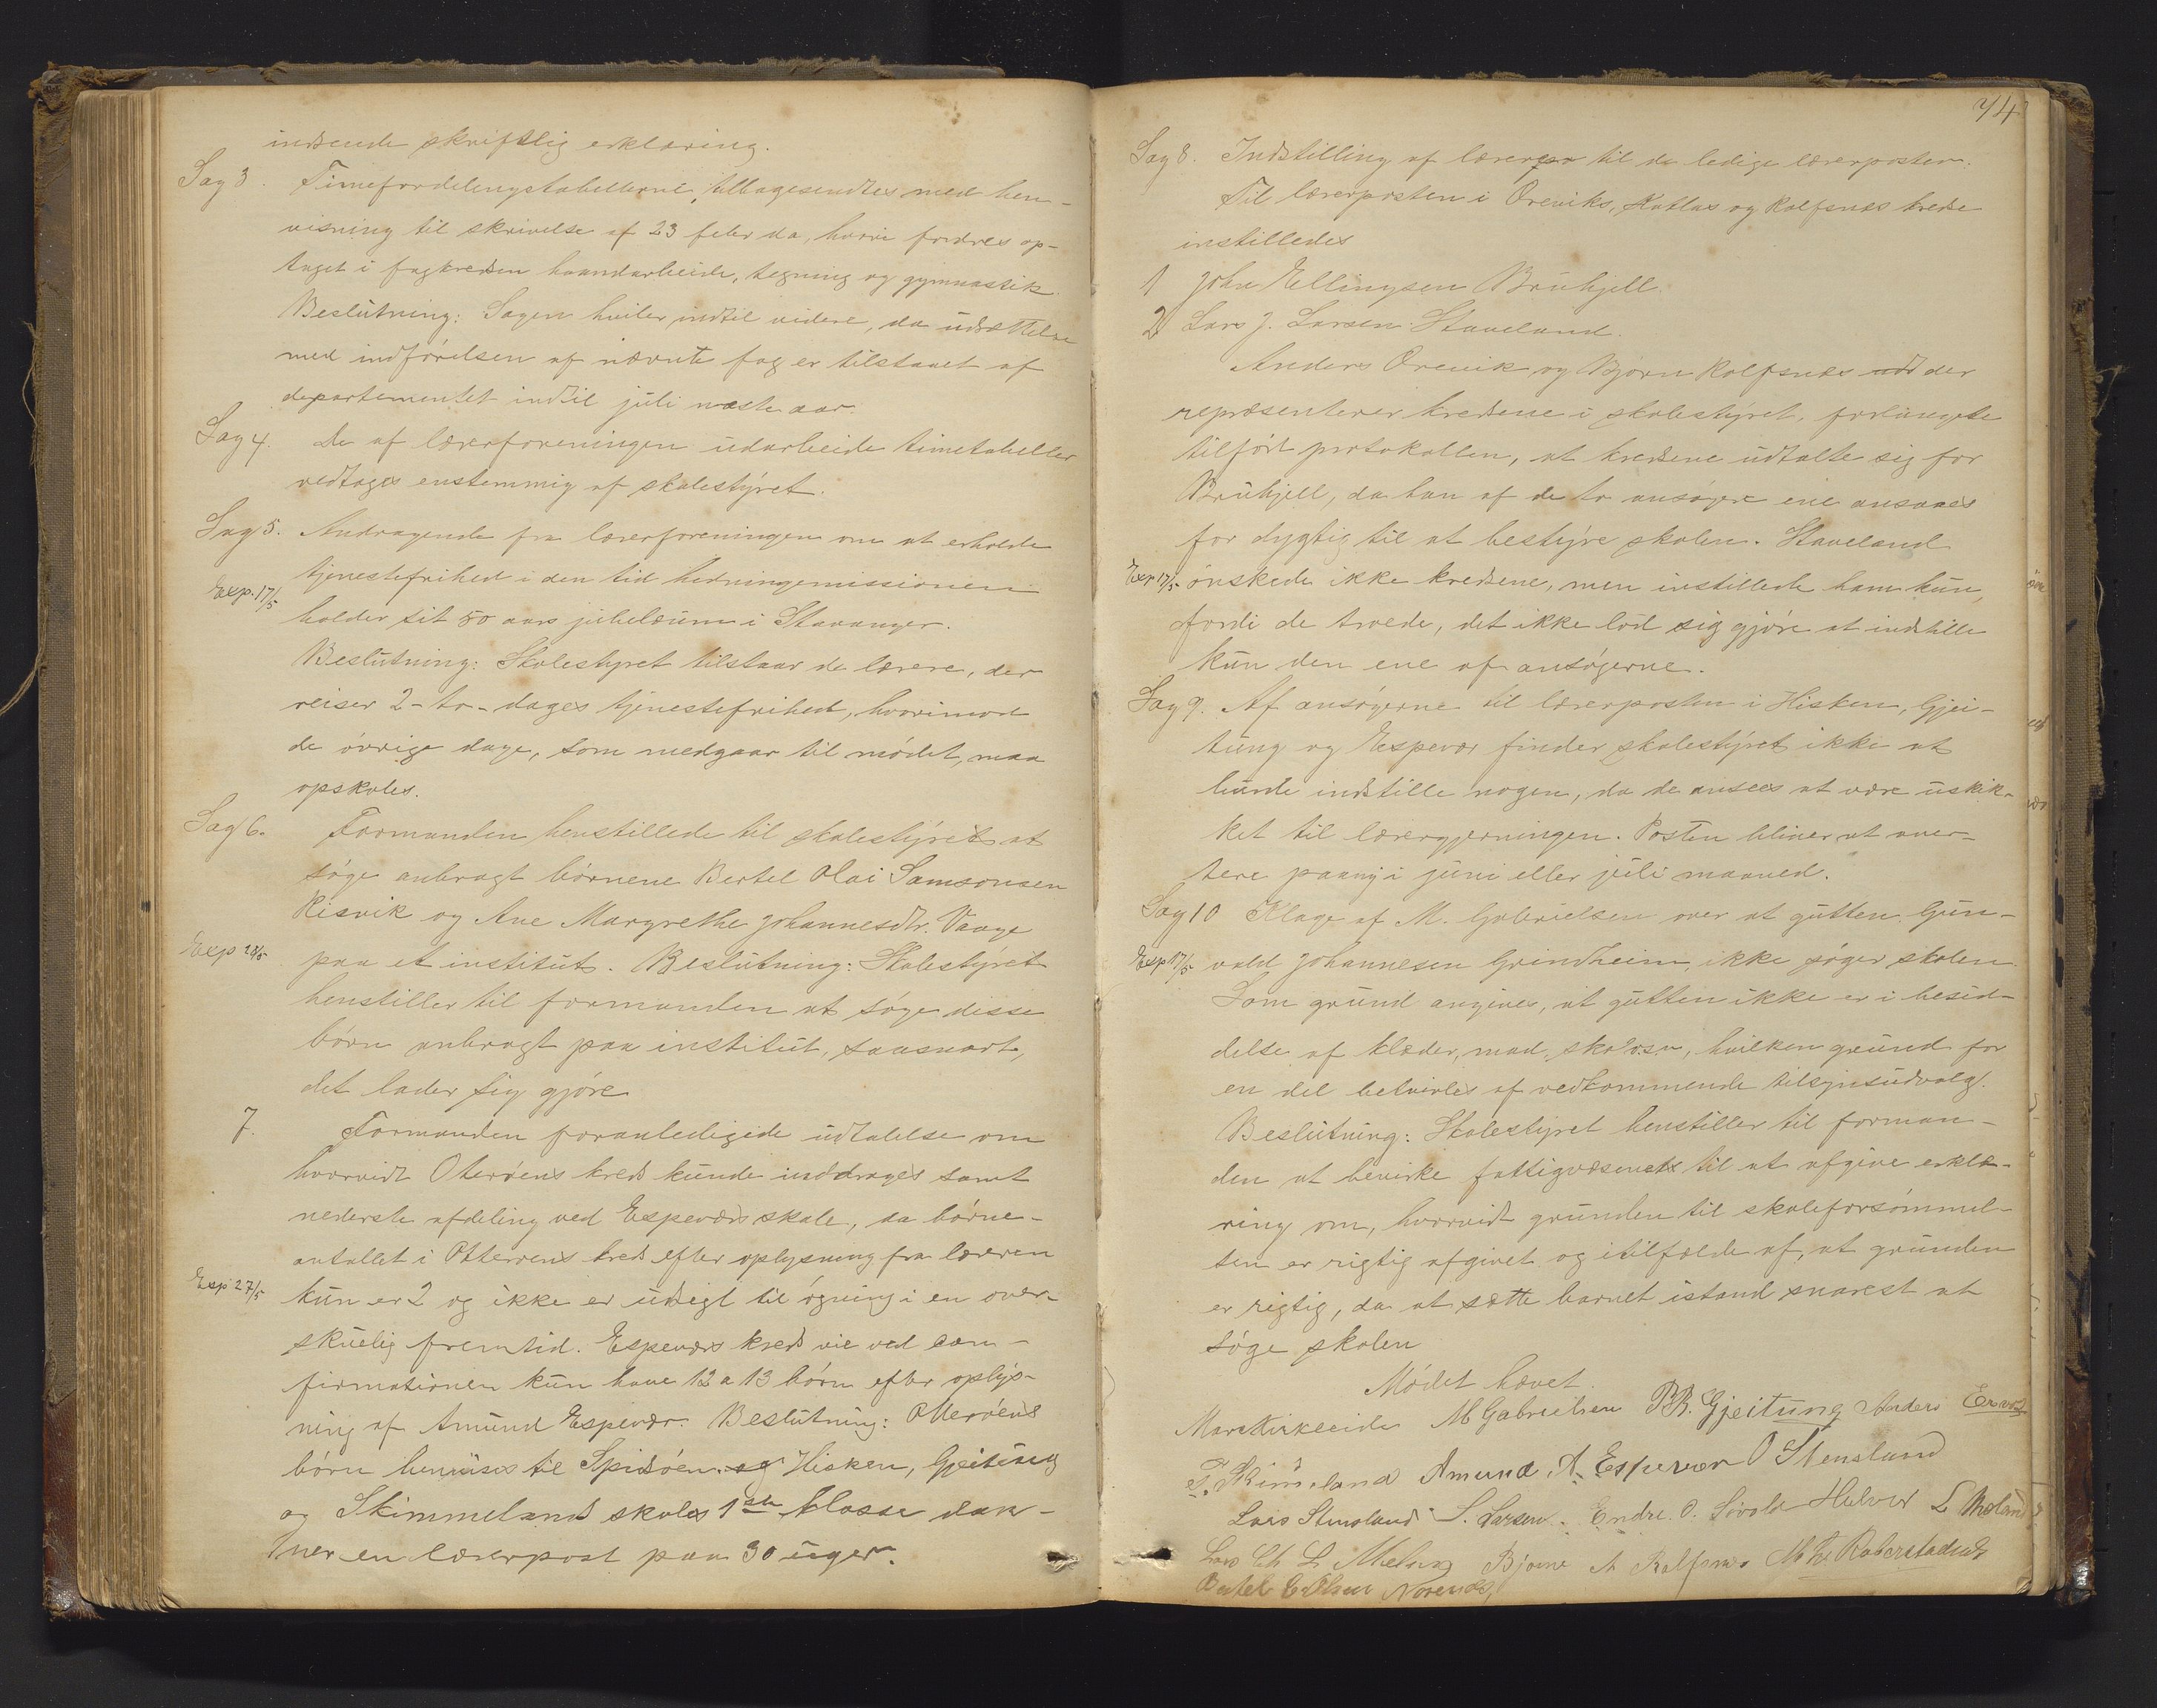 indsende skriftlig erklæring.
Sag 3. Timefordelingstabellerne tilbagesendtes med hen-
visning til skrivelse af 23 febr da, hvori fordres op-
taget i fagkredsen haandarbeide, tegning og gymnastik.
Beslutning: Sagen hviler indtil videre, da udsættelse
med indförelsen af nævnte fag er tilstaaet af
departementet indtil juli næste aar.
Sag 4. De af lærerforeningen udarbeide timetabeller
vedtages enstemmig af skolestyret.
Sag 5. Andragende fra lærerforeningen om at erholde
Exp. 17/5 tjenestefrihed i den tid hedningemissionen
holder sit 50 aars jubelæum i Stavanger.
Beslutning: Skolestyret tilstaar de lærere, der
reiser 2-to-dages tjenestefrihed, hvorimod
de óvrige dage, som medgaar til módet, maa
opskoles.
Sag 6. Formanden henstillede til skolestyret at
sóge anbragt bórnene Bertel Olai Samsonsen
Risvik og Ane Margrethe Johannesdtr. Vaage
Exp 28/5 paa et institut. Beslutning: Skolestyret
henstiller til formanden at sóge disse
bórn anbragt paa institut, saasnart,
det lader sig gjóre
7. Formanden foranledigede udtalelse om
hvorvidt Oteróens kreds kunde inddrages samt
nederste afdeling ved Espeværs skole, da bórne-
antallet i Otteroens kreds efter oplysning fra læreren
Exp 27/5 kun er 2 og ikke er udsigt til ógning i en over-
skuelig fremtid. Espeværs kreds vil ved con-
firmationen kun have 12 a 13 bórn efter oplys-
ning af Amund Espevær. Beslutning: Otteróens
bórn henvises til Spidsóen og Hisken, Gjeitung
og Skimmelands skoles 1ste klasse dan-
ner en lærerpost paa 30 uger.
74
Sag 8. Indstilling af lærer til de ledige lærerposter.
Til lærerposten i Oreviks, Katlas og Rolfsnes krese
instilledes
1 John Ellingsen Bruhjell
2 Lars J. Larsen Staveland.
Anders Orevik og Bjórn Rolfsnes der
repræsenterer kredsene i skolestyret, forlangte
tilfórt protokollen, at kredsene udtalte sig for
Bruhjell, da han af de to ansógere ene ansaaes
for dygtig til at bestyre skolen. Staveland
Exp 17/5 ónskede ikke kredsene, men instillede ham kun,
fordi de troede, det ikke lod sig gjóre at indstille
kun den ene af ansógerne.
Sag 9. Af ansógerne til lærerposten i Hisken, Gjei-
tung og Espevær finder skolestyret ikke at
kunde indstille nogen, da de ansees at være uskik-
ket til lærergjerningen. Posten bliver at aver-
tere paany i juni eller juli maaned.
Sag 10 Klage af M. Gabrielsen over at gutten Gun-
Exp 17/5 vald Johannesen Grindheim, ikke sóger skolen
Som grund angives, at gutten ikke er i besid-
delse af klæder, mad, sko o.s.v, hvilken grund for
en del betvivles af vedkommende tilsynsudvalg.
Beslutning: Skolestyret henstiller til forman-
den at bevirke fattigvæsenets til at afgive erklæ-
ring om, hvorvidt grunden til skoleforsómmel-
sen er rigtig afgivet og itilfælde af, at grunden
er rigtig, da at sætte barnet istand snarest at
sóge skolen
Módet hævet.
M Gabrielsen Gjeitung Anders
Skimeland Amund A. Espevær O Stensland
Lars Stensland S. Larsen. Endre O. L Meland
Lars Bjorne Rolfsnes